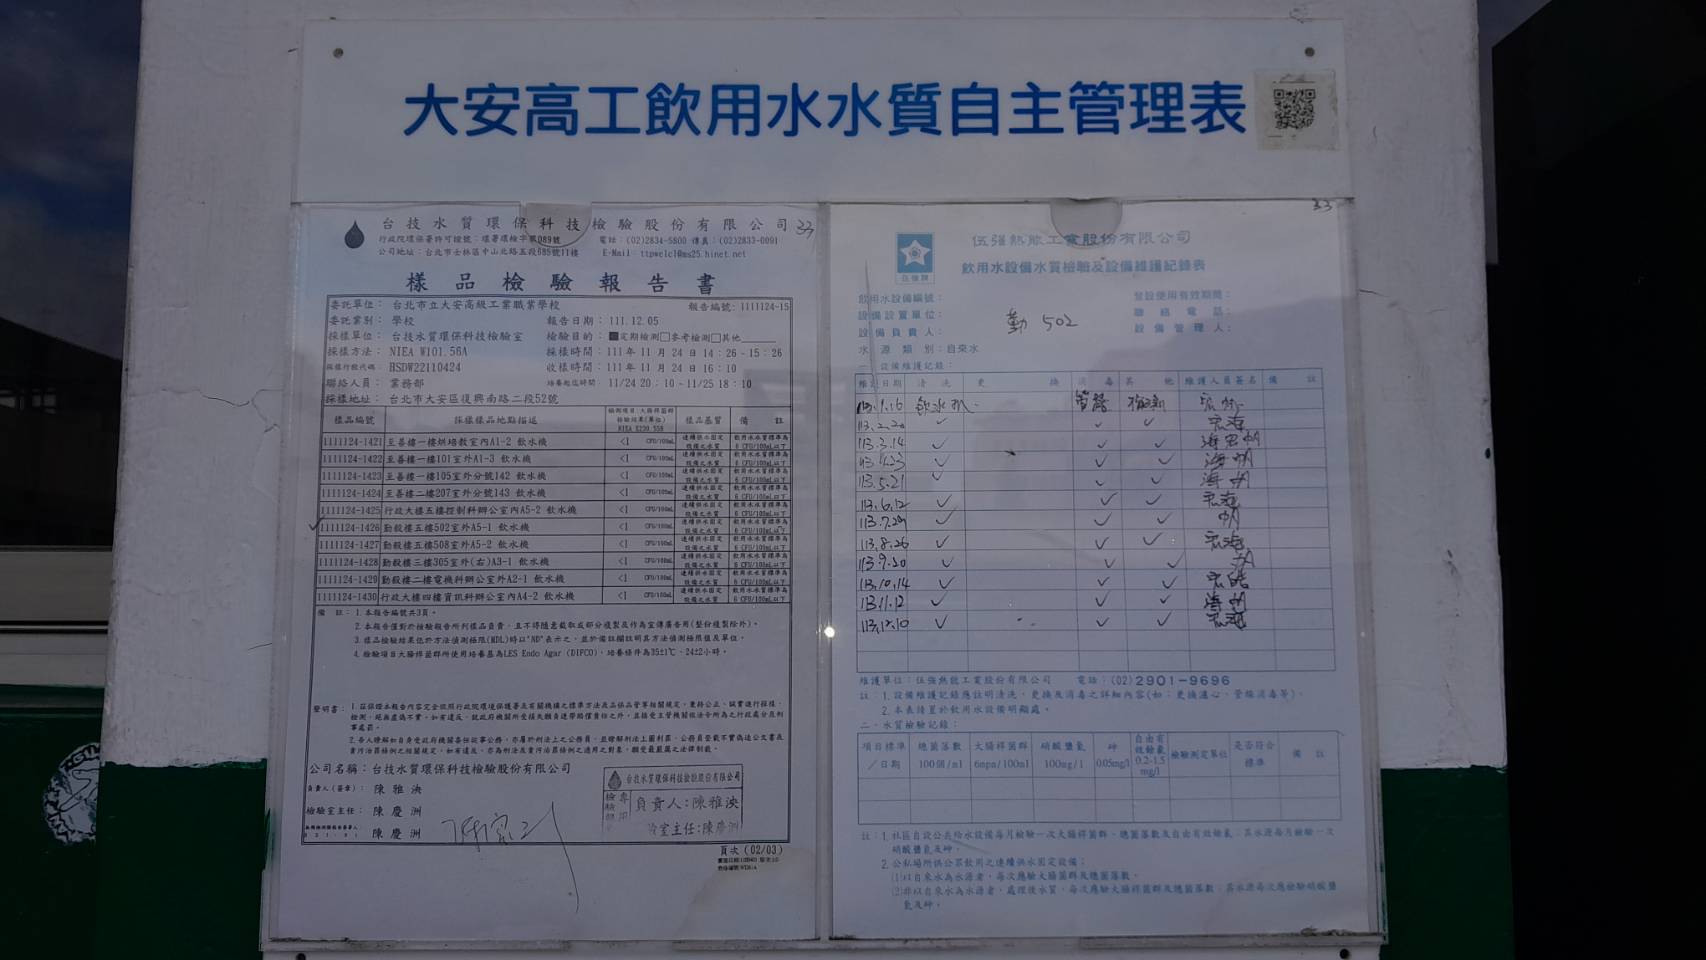 大安高工飲用水水質自主管理表
台技水質環保科技檢驗股份有限公司 33
行政院環保署許可證號：環署環檢字第089號 電話：(02)2834-5800 傳真：(02)2833-0091
公司地址：台北市士林區中山北路五段685號11樓 E-Mail：ttpwelcl@ms25.hinet.net
樣品檢驗報告書
委託單位：台北市立大安高級工業職業學校 報告編號：1111124-15
委託業別：學校 報告日期：111.12.05
採樣單位：台技水質環保科技檢驗室 檢驗目的：■定期檢測□參考檢測□其他
採樣方法：NIEA W101.56A 採樣時間：111年11月24日14：26~15：26
採樣行程代碼：HSDW22110424 收樣時間：111年11月24日16：10
聯絡人員：業務部 培養起迄時間：11/24 20：10~11/25 18：10
採樣地址：台北市大安區復興南路二段52號
樣品編號 採樣樣品地點描述 檢測項目:大腸桿菌群 檢驗結果(單位) NIEA E230.55B 樣品基質 備 註
1111124-1421 至善樓一樓烘培教室內A1-2 飲水機 <1 CFU/100mL 連續供水固定設備之水質 飲用水水質標準為6 CFU/100mL以下
1111124-1422 至善樓一樓101室外A1-3 飲水機 <1 CFU/100mL 連續供水固定設備之水質 飲用水水質標準為6 CFU/100mL以下
1111124-1423 至善樓一樓105室外分號142 飲水機 <1 CFU/100mL 連續供水固定設備之水質 飲用水水質標準為6 CFU/100mL以下
1111124-1424 至善樓二樓207室外分號143 飲水機 <1 CFU/100mL 連續供水固定設備之水質 飲用水水質標準為6 CFU/100mL以下
1111124-1425 行政大樓五樓控制科辦公室內A5-2 飲水機 <1 CFU/100mL 連續供水固定設備之水質 飲用水水質標準為6 CFU/100mL以下
✓ 1111124-1426 勤毅樓五樓502室外A5-1 飲水機 <1 CFU/100mL 連續供水固定設備之水質 飲用水水質標準為6 CFU/100mL以下
1111124-1427 勤毅樓五樓508室外A5-2 飲水機 <1 CFU/100mL 連續供水固定設備之水質 飲用水水質標準為6 CFU/100mL以下
1111124-1428 勤毅樓三樓305室外(右)A3-1 飲水機 <1 CFU/100mL 連續供水固定設備之水質 飲用水水質標準為6 CFU/100mL以下
1111124-1429 勤毅樓二樓電機科辦公室外A2-1 飲水機 <1 CFU/100mL 連續供水固定設備之水質 飲用水水質標準為6 CFU/100mL以下
1111124-1430 行政大樓四樓資訊科辦公室內A4-2 飲水機 <1 CFU/100mL 連續供水固定設備之水質 飲用水水質標準為6 CFU/100mL以下
備 註：1.本報告編號共3頁。
2.本報告僅對於檢驗報告所列樣品負責，且不得隨意截取或部分複製及作為宣傳廣告用(整份複製除外)。
3.樣品檢驗結果低於方法偵測極限(MDL)時以"ND"表示之，並於備註欄註明其方法偵測極限值及單位。
4.檢驗項目大腸桿菌群所使用培養基為LES Endo Agar (DIFCO)，培養條件為35±1℃、24±2小時。
聲明書：1.茲保證本報告內容完全依照行政院環境保護署及有關機構之標準方法及品保品管等相關規定，秉持公正、誠實進行採樣、
檢測。絕無虛偽不實，如有違反，就政府機關所受損失願負連帶賠償責任之外，並接受主管機關依法令所為之行政處分及刑
事處罰。
2.吾人瞭解如自身受政府機關委任從事公務，亦屬於刑法上之公務員，並瞭解刑法上圖利罪、公務員登載不實偽造公文書及
貪污治罪條例之相關規定，如有違反，亦為刑法及貪污治罪條例之適用之對象，願受最嚴厲之法律制裁。
公司名稱：台技水質環保科技檢驗股份有限公司
負責人(簽章)：陳雅泱
檢驗室主任：陳慶洲
陳慶洲
台技水質環保科技檢驗股份有限公司
檢驗報告專用
負責人:陳雅泱
檢驗室主任:陳慶洲
頁次 (02/03)
33
伍強熱能工業股份有限公司
飲用水設備水質檢驗及設備維護記錄表
飲用水設備編號： 登設使用有效期間：
設備設置單位： 聯絡電話：
勤 502
設備負責人： 設備管理人：
水源類別：自來水
一、設備維護記錄：
維護日期 清洗 更換 消毒 其他 維護人員簽名 備註
113.1.16 飲水机
113.2.20 ✓ ✓ ✓
113.3.14 ✓ ✓ ✓
113.4.23 ✓ ✓ ✓
113.5.21 ✓ ✓ ✓
113.6.12 ✓ ✓ ✓
113.7.29 ✓ ✓ ✓
113.8.26 ✓ ✓ ✓
113.9.20 ✓ ✓ ✓
113.10.14 ✓ ✓ ✓
113.11.12 ✓ ✓ ✓
113.12.10 ✓ ✓ ✓
維護單位：伍強熱能工業股份有限公司 電話：(02)2901-9696
註：1.設備維護記錄應註明清洗、更換及消毒之詳細內容(如：更換濾心、管線消毒等)。
2.本表後置於飲用水設備明顯處。
二、水質檢驗記錄：
項目標準／日期 總菌落數100個/ml 大腸桿菌群6mpa/100ml 硝酸鹽氮100mg/l 砷0.05mg/l 自由有效餘氯0.2-1.5mg/l 檢驗測定單位 是否符合標準 備註
註：1.社區自設公共給水設備每月檢驗一次大腸桿菌群、總菌落數及自由有效餘氯，其水源每月檢驗一次
硝酸鹽氮及砷。
2.公私場所供公眾飲用之連續供水固定設備：
(1)以自來水為水源者，每次應驗大腸菌群及總菌落數。
(2)非以自來水為水源者，處理後水質，每次應驗大腸桿菌群及總菌落數，其水源每次應檢驗硝酸鹽
氮及砷。